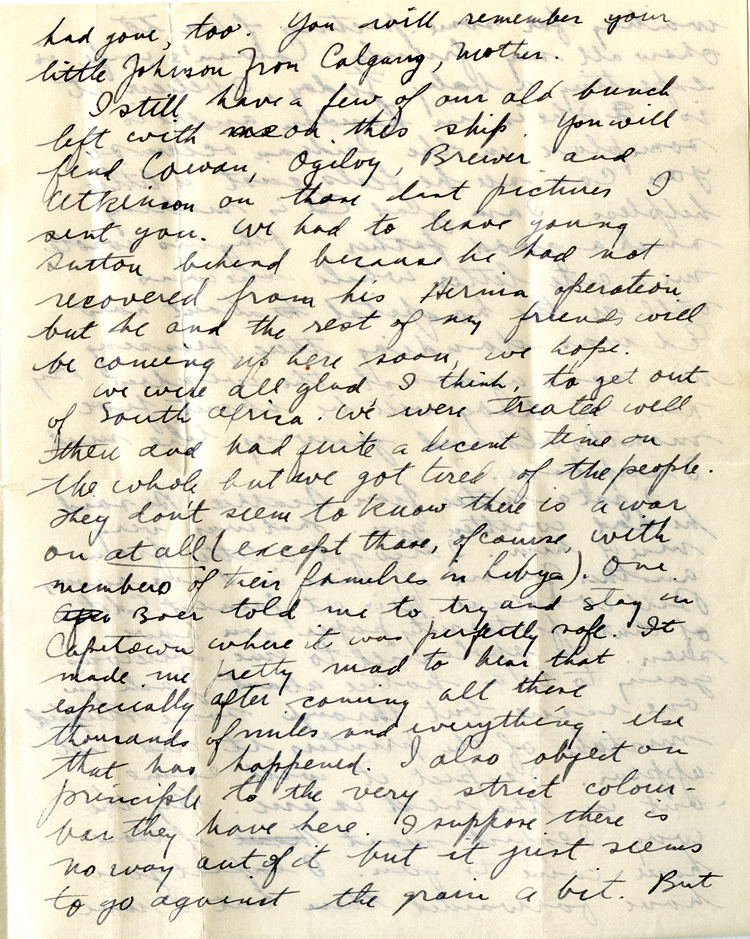 had gone, too. You will remember your
little Johnson from Calgary, Mother.
I still have a few of our old bunch
left with me on this ship. You will
find Cowan, Ogilvy, Brewer and
Atkinson on those last pictures I
sent you. We had to leave young
Sutton behind because he had not
recovered from his Hernia operation
but he and the rest of my friends will
be coming up here soon, we hope.
We were all glad, I think, to get out
of South Africa. We were treated well
there and had quite a decent time on
the whole but we got tired of the people.
They don't seem to know there is a war
on at all (except those, of course, with
members of their families in Libya). One
Boer told me to try and stay in
Capetown where it was perfectly safe. It
made me pretty mad to hear that
especially after coming all these
thousands of miles and everything else
that has happened. I also object on
principle to the very strict colour-
bar they have here. I suppose there is
no way out of it but it just seems
to go against the grain a bit. But